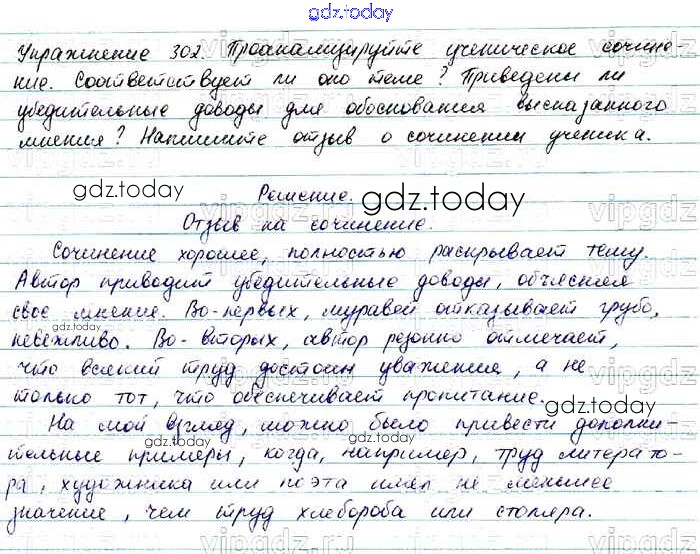 gdz.today
Упражнение 302. Проанализируйте ученическое сочине-
ние. Соответствует ли оно теме? Приведены ли
убедительные доводы для обоснования высказанного
мнения? Напишите отзыв о сочинении ученика.
gdz.today
Решение. gdz.today
Отзыв на сочинение.
Сочинение хорошее, полностью раскрывает тему.
Автор приводит убедительные доводы, объясняя
свое мнение. Во-первых, муравей отказывает грубо,
gdz.today
невежливо. Во-вторых, автор резонно отмечает,
что всякий труд достоин уважения, а не
только тот, что обеспечивает пропитание.
gdz.today
На мой взгляд, можно было привести дополни-
gdz.today
тельные примеры, когда, например, труд литерато-
gdz.today
ра, художника или поэта имел не меньшее
значение, чем труд хлебороба или столяра.